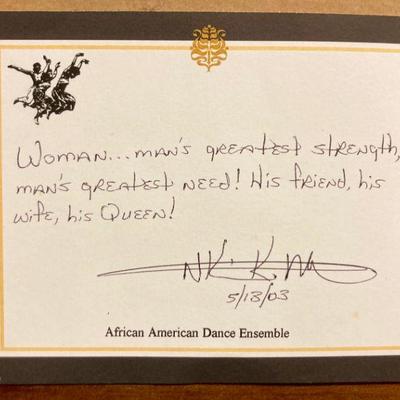 Woman... man's greatest strength,
man's greatest need! His friend, his
wife, his Queen!
5/13/03
African American Dance Ensemble